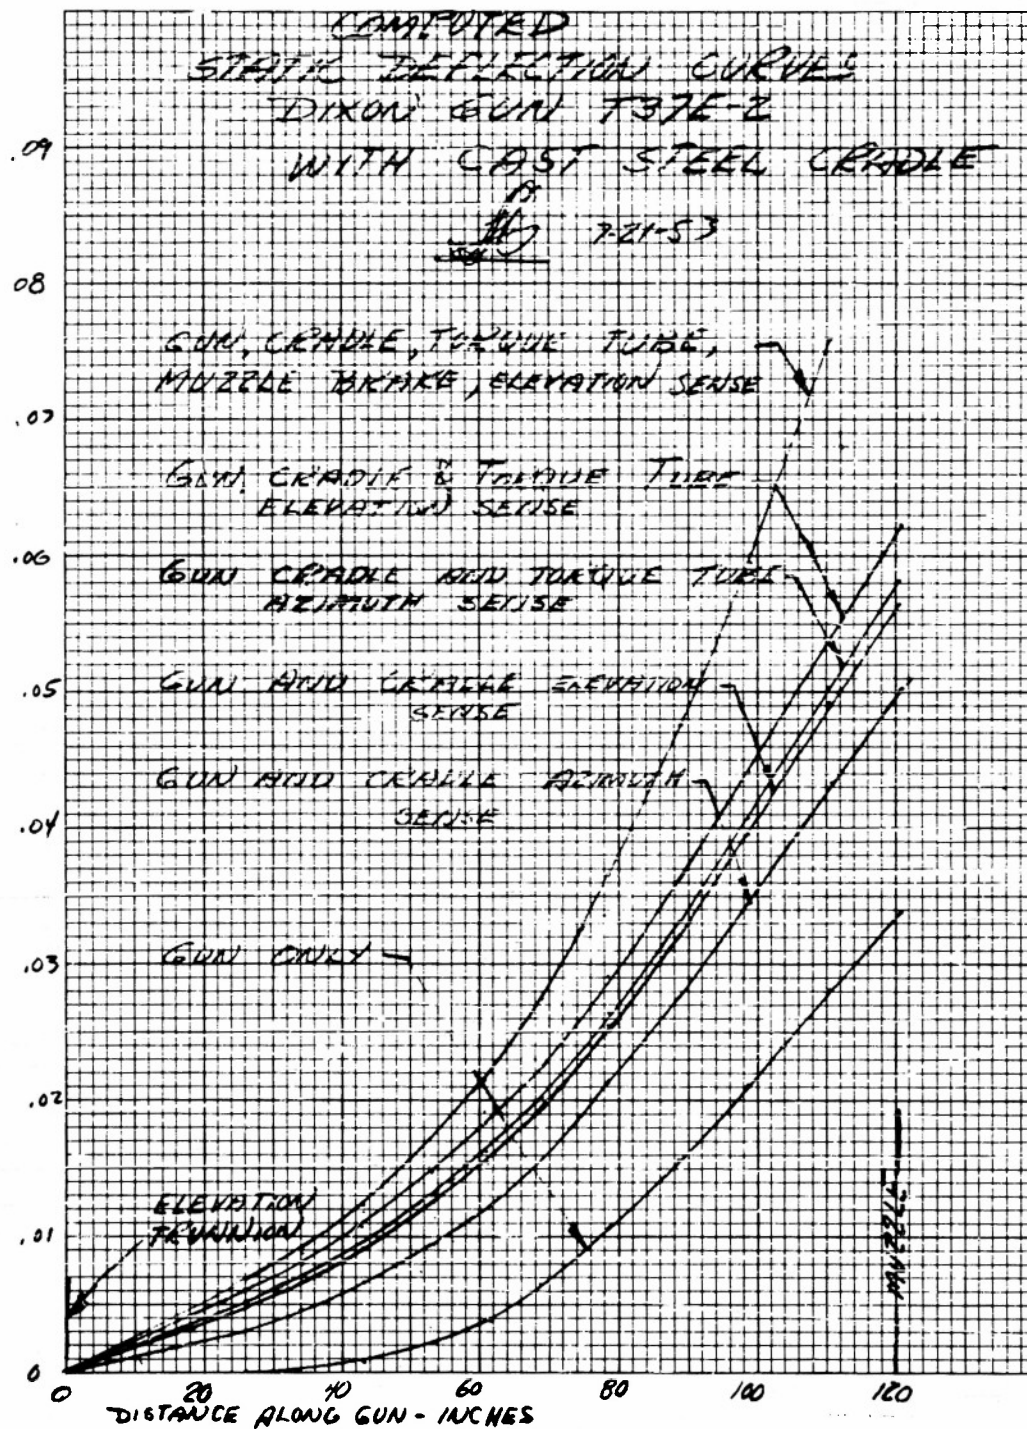 COMPUTED
STATIC DEFLECTION CURVES
DIXON GUN T37E-2
WITH CAST STEEL CRADLE
7-21-53
.09
08
GUN, CRADLE, TORQUE TUBE,
MUZZLE BRAKE, ELEVATION SENSE
.07
GUN, CRADLE & TORQUE TUBE
ELEVATION SENSE
.06
GUN CRADLE AND TORQUE TUBE
AZIMUTH SENSE
.05
GUN AND CRADLE ELEVATION
SENSE
GUN AND CRADLE AZIMUTH
SENSE
.04
GUN ONLY
.03
.02
ELEVATION
TRUNNION
.01
MUZZLE
0
0 20 40 60 80 100 120
DISTANCE ALONG GUN - INCHES